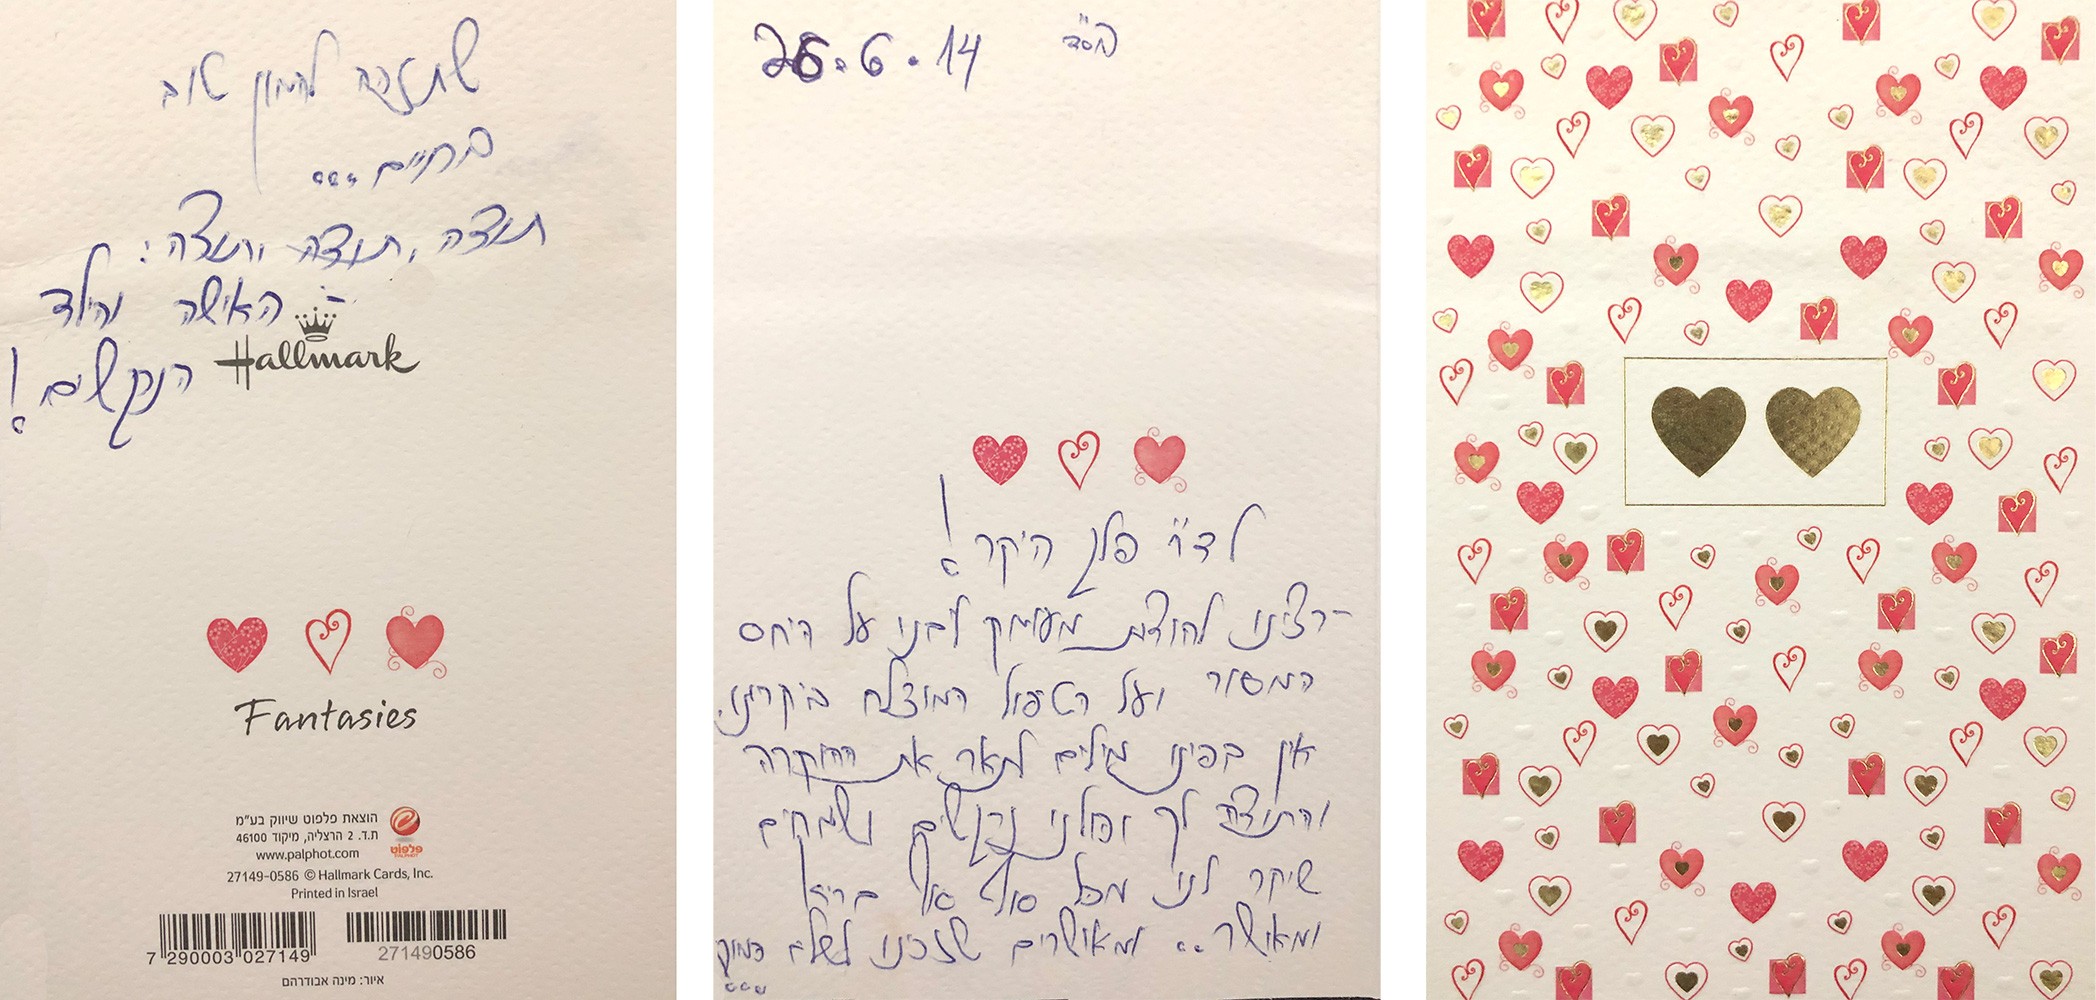 בס"ד 26.6.14
לד"ר פלג היקר!
רצינו להודות מעומק ליבנו על היחס
המסור ועל הטיפול המוצלח ביקרנו.
אין בפינו מילים לתאר את ההוקרה
והתודה לך וכולנו נרגשים ושמחים
שיקר לנו מכל סוף סוף בריא
ומאושר.. ומאושרים שזכינו כמוך
...
שתזכה להמון טוב
בחיים...
תודה, תודה ותודה:
האישה והילד
Hallmark
Fantasies
הוצאת פלפוט שיווק בע"מ
ת.ד. 2 הרצליה, מיקוד 46100
www.palphot.com
פלפוט
PALPHOT
27149-0586 © Hallmark Cards, Inc.
Printed in Israel
7 290003 027149
271490586
איור: מינה אבודרהם